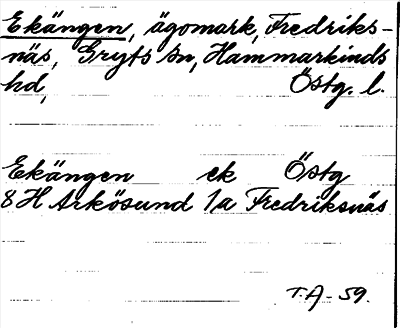 Ekängen, ägomark, Fredriks-
näs, Gryts sn, Hammarkinds
hd, Östg. l.
Ekängen ek Östg
8 H Arkösund 1a Fredriksnäs
T.A-59.